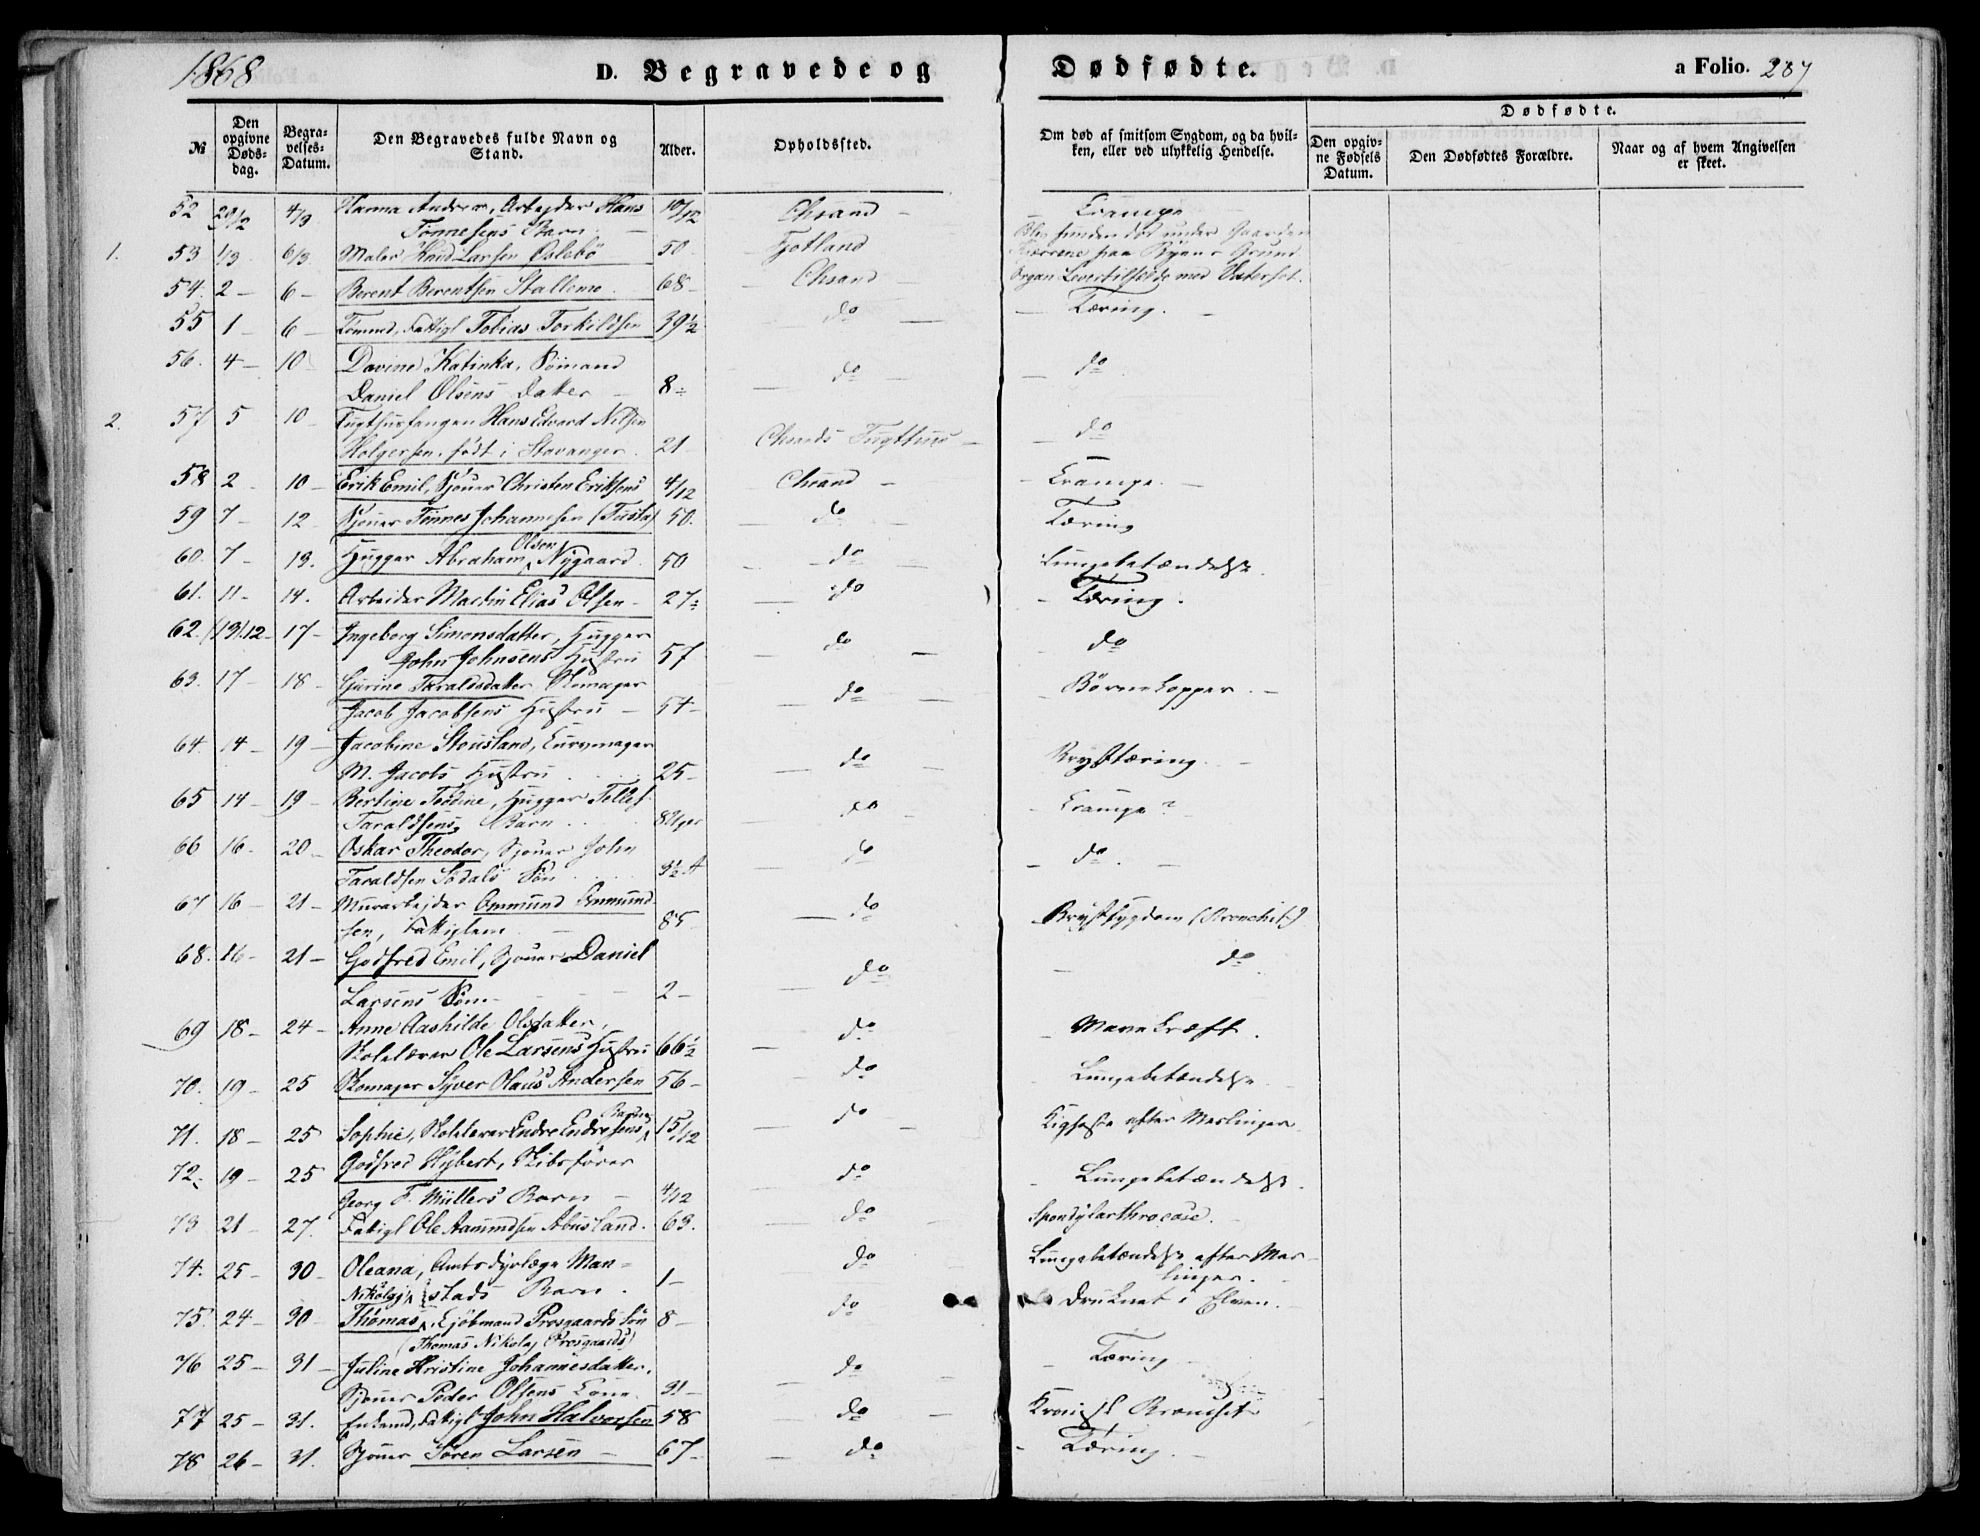 1868
D. Begravede og Dødfødte. a Folio. 287
№
Den opgivne Døds-dag.
Begra-velses-Datum.
Den Begravedes fulde Navn og Stand.
Alder.
Opholdssted.
Om død af smitsom Sygdom, og da hvil-ken, eller ved ulykkelig Hendelse.
Dødfødte.
Den opgiv-ne Fødsels Datum.
Den Dødfødtes Forældre.
Naar og af hvem Angivelsen er skeet.
52 29/2 4/3 Hanna Andrea, Arbejder Hans 10/12 Chsand - Krampe
Tønnesens Barn
1. 53 1/3 6/3 Maler Knud Larsen Oslebö 50 Fjotland
54. 2 - 6 - Berent Berentsen Stallemo 68 - Chsand
55 1 - 6 - Tømmerm. Fattigl Tobias Torkildsen 39½ do Tæring.
56. 4 - 10 Davine Katinka, Sömand
Daniel Olsens Datter 8 do do
2. 57 5 10 - Tugthusfangen Hans Edvard Nilsen
Holgersen, født i Stavanger. 21 Chsands Tugthuus - do
58 2 - 10 - Erik Emil, Sjouer Christen Eriksens 4/12 Chsand - Krampe.
59 7 - 12 - Sjouer Tönnes Johannesen (Tusta) 50. do Tæring
60. 7 - 13. Hugger Abraham Olsen Nygaard 50 do Lungebetændelse.
61. 11 - 14. Arbeider Martin Elias Olsen - 27 do Tæring.
62. (13) 12 - 17 - Ingeborg Simonsdatter, Hugger
John Johnsens Hustru 57 do do
63. 17 - 18 - Gurine Taraldsdatter Skomager
Jacob Jacobsens Hustru - 54 - do Børnekopper. -
64. 14 - 19 - Jacobine Stousland, Kurvmager
M. Jacobs Hustru 25 - do Brysttæring.
65 14 - 19 - Bertine Teodine, Hugger Tellef
Taraldsens Barn 8 Uger do Krampe?
66 16 - 20 - Oskar Theodor, Sjouer John
Taraldsen Södals Sön 3½ A do do
67 16 - 21 - Murarbejder Ommund Ommund-
sen, Fattiglem 85 do Brystsygdom (Bronchit.)
68. 16 - 21 - Godfred Emil, Sjouer Daniel
Larsens Sön 2 - do do
69 18 - 24 - Anne Aashilde Olsdatter,
Skolelærer Ole Larsens Hustru 66½ do Mavekræft.
70. 19 - 25 Skomager Syver Olaus Andersen 56 - do Lungebetændelse
71. 18 - 25 Sophie, Skolelærer Endre Endresens Barn 15/12 do Kighoste efter Meslinger.
72. 19 - 25 Godfred Hybert, Skibsfører
Georg F. Müllers Barn - 4/12 do Lungebetændelse.
73 21 - 27. Fattigl Ole Aanundsen Abusland. 63. do Spondylarthrocace.
74. 25 - 30 - Oleana, Amtsdyrlæge Man-
stads Barn. 1 - do Lungebetændelse efter Mes-
linger.
75. 24 - 30 - Thomas Nikolaj, Kjöbmand Prosgaards Sön 8 - do Druknet i Elven.
(Thomas Nikolaj Prosgaards)
76 25 - 31 - Juline Kristine Johannesdatter,
Sjouer Peder Olsens Kone 31 - do Tæring
77 25 - 31. Enkemd, Fattigl John Halvorsen 58 do Kronisk Bronchit
78 26 - 31. Sjouer Sören Larsen - 67 - do Tæring.